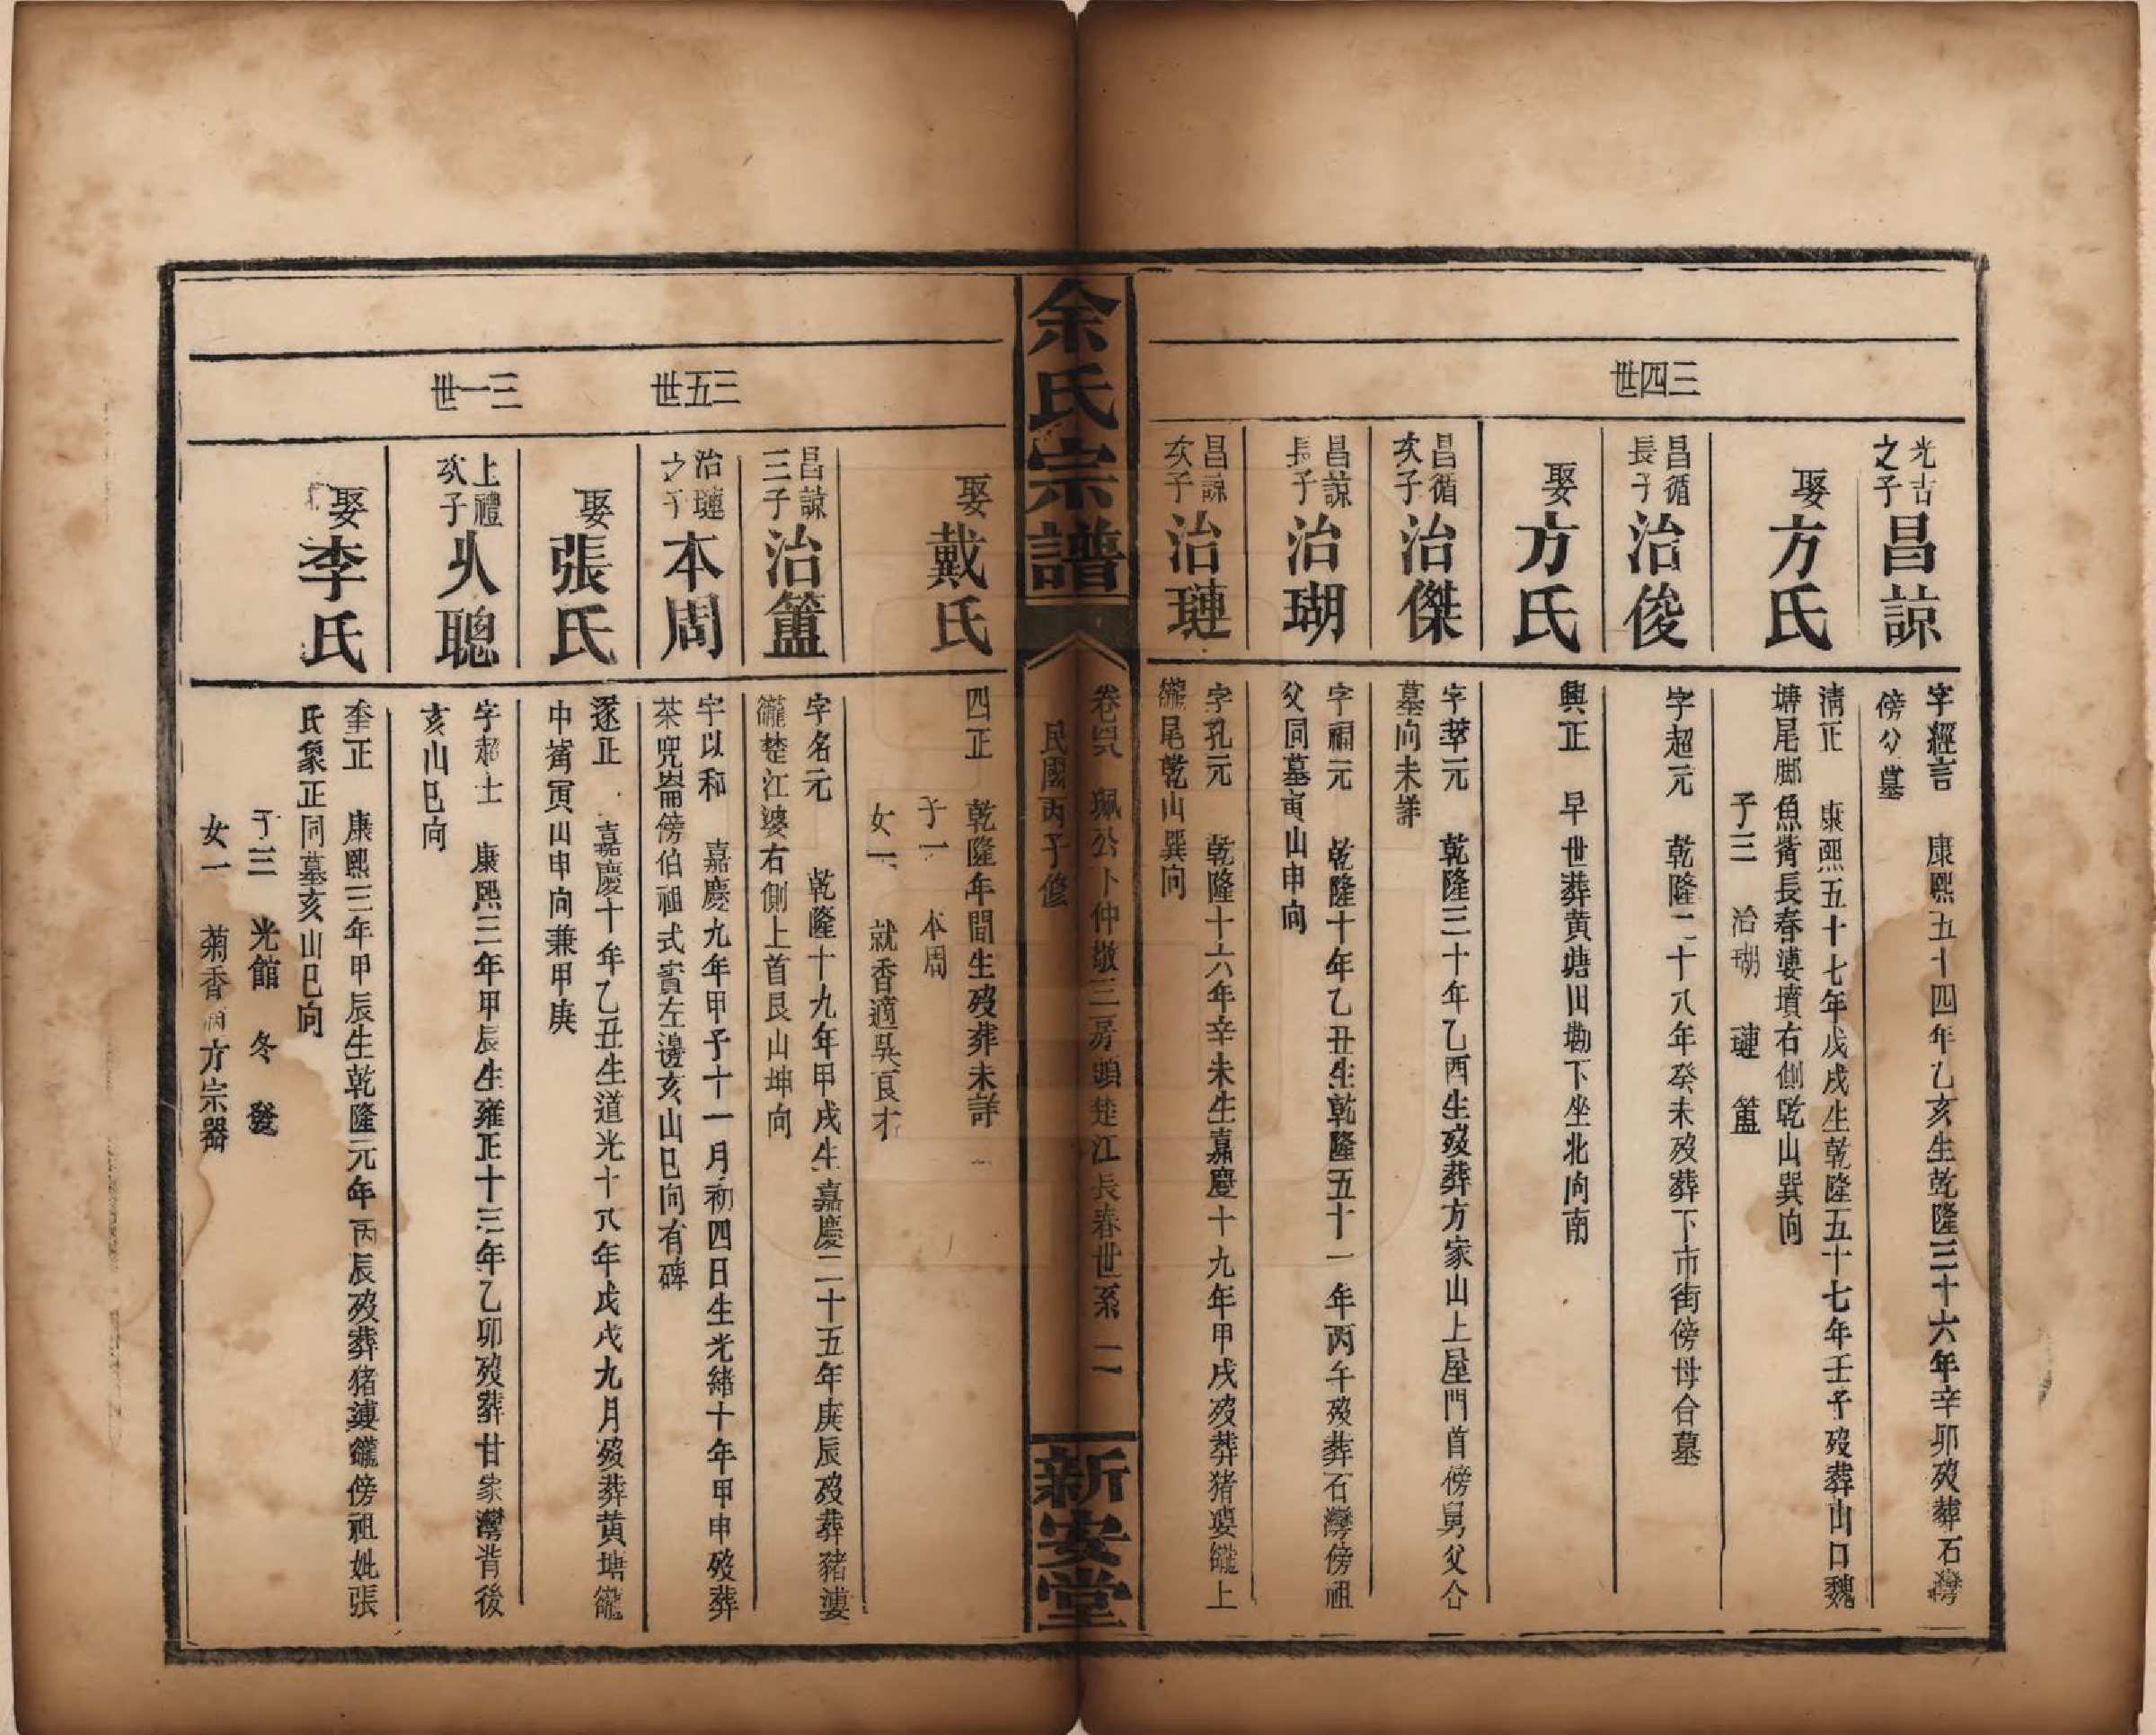 三四世
光古之子
昌諒
字經言 康熙五十四年乙亥生乾隆三十六年辛卯歿葬石灣
傍公墓
娶方氏
清正 康熙五十七年戊戌生乾隆五十七年壬子歿葬山口魏
塘尾脚魚背長春漊墳右側乾山巽向
子三 治瑚 璉 簠
昌循長子
治俊
字超元 乾隆二十八年癸未歿葬下市街傍母合墓
娶方氏
興正 早世葬黄塘田墈下坐北向南
昌循次子
治傑
字莘元 乾隆三十年乙酉生歿葬方家山上屋門首傍舅父仝
墓向未詳
昌諒長子
治瑚
字禑元 乾隆十年乙丑生乾隆五十一年丙午歿葬石灣傍祖
父同墓寅山申向
昌諒次子
治璉
字孔元 乾隆十六年辛未生嘉慶十九年甲戌歿葬猪婆龓上
龓尾乾山巽向
余氏宗譜
珮公卜仲敬三房頭楚江長春世系 二
民國丙子修
新安堂
三五世
三一世
娶戴氏
四正 乾隆年間生歿葬未詳
子一 本周
女一 就香適吳良才
昌諒三子
治簠
字名元 乾隆十九年甲戌生嘉慶二十五年庚辰歿葬豬漊
龓楚江婆右側上首艮山坤向
治璉之子
本周
字以和 嘉慶九年甲子十一月初四日生光緒十年甲申歿葬
茶兜崙傍伯祖式賓左邊亥山巳向有碑
娶張氏
遂正 嘉慶十年乙丑生道光十八年戊戌九月歿葬黄塘龓
中嵴寅山申向兼甲庚
上禮次子
火聰
字超士 康熙三年甲辰生雍正十三年乙卯歿葬甘家灣背後
亥山巳向
娶李氏
奎正 康熙三年甲辰生乾隆元年丙辰歿葬猪漊龓傍祖妣張
氏象正同墓亥山巳向
子三 光館 冬 發
女一 菊香適方宗器